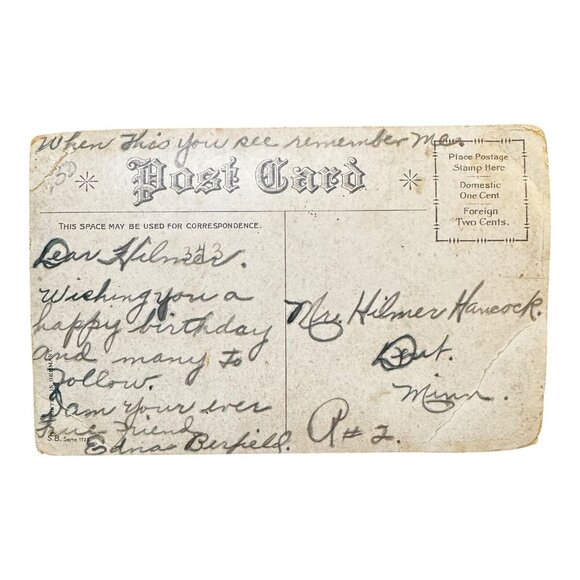 When this you see remember Mar
.50
Post Card
Place Postage
Stamp Here
Domestic
One Cent
Foreign
Two Cents.
THIS SPACE MAY BE USED FOR CORRESPONDENCE.
Dear Hilmer.
Wishing you a
happy birthday
and many to
follow.
I am your ever
true Friend
Edna Berfield.
S.B. Serie
Hilmer Hancock.
Dent.
Minn.
R#2.